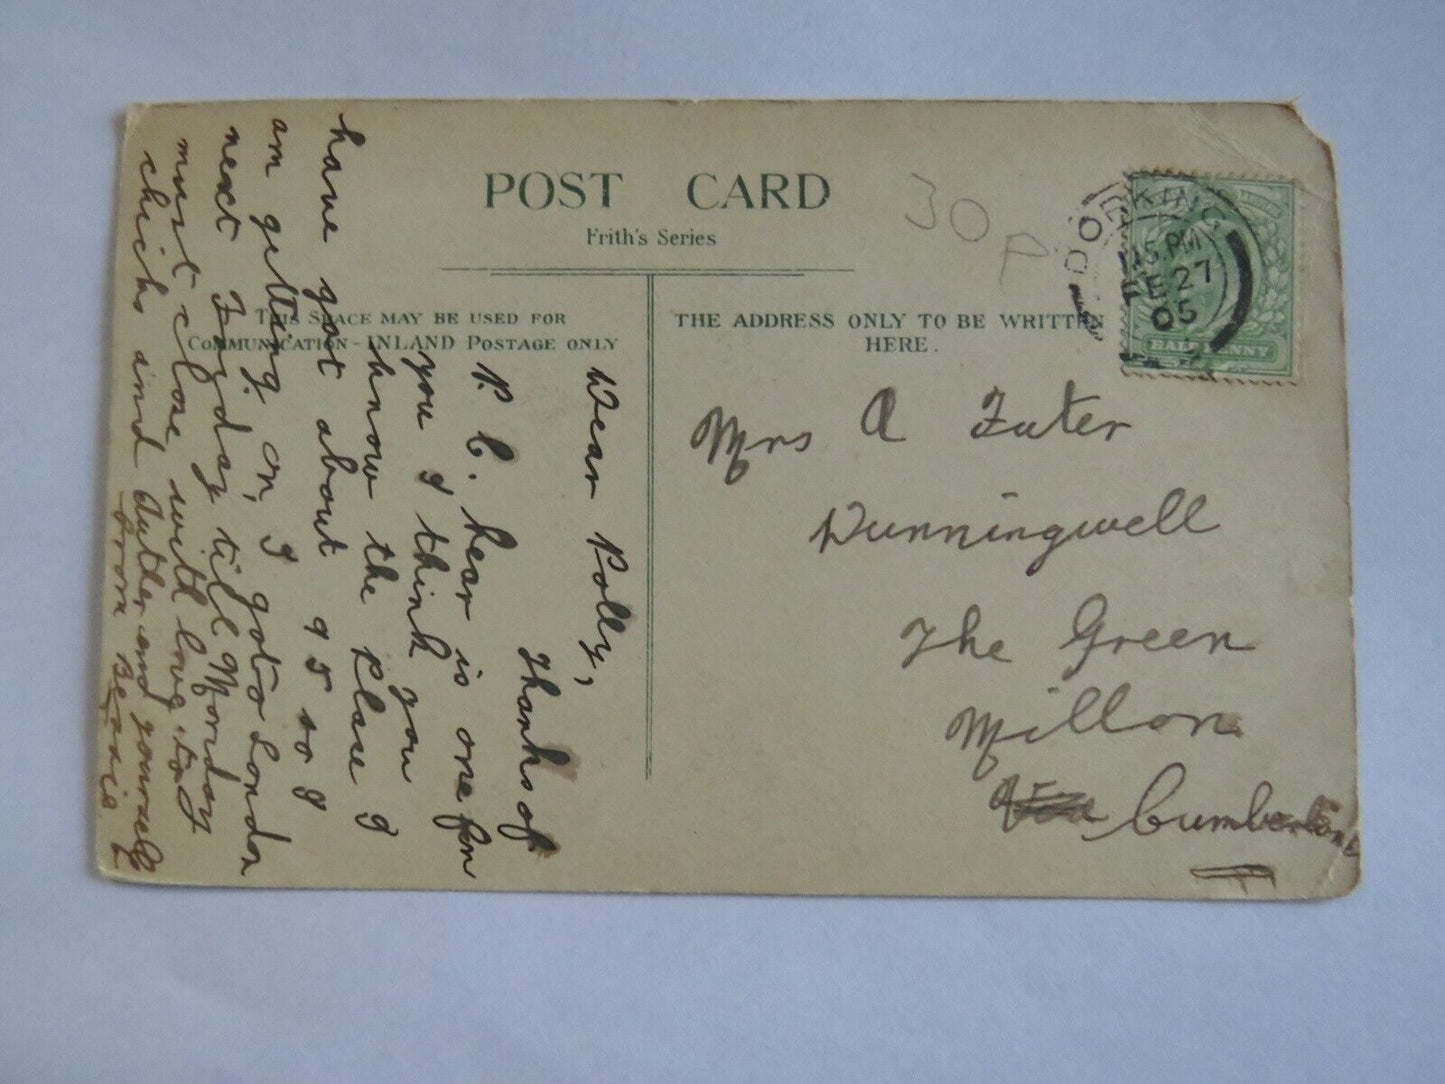 POST CARD
Frith's Series
THIS SPACE MAY BE USED FOR
COMMUNICATION - INLAND POSTAGE ONLY
THE ADDRESS ONLY TO BE WRITTEN
HERE.
30P
DORKING
15 PM
FE 27
05
HALFPENNY
Mrs A Futer
Dunningwell
The Green
Millom
Cumberland
Dear Polly,
Thanks of
P. C. hear is one for
you I think you
know the place I
have got about 95 so I
am getting on, I go to London
next Friday till Monday
must close with love to
chicks and Auther and yourself
from Bessie